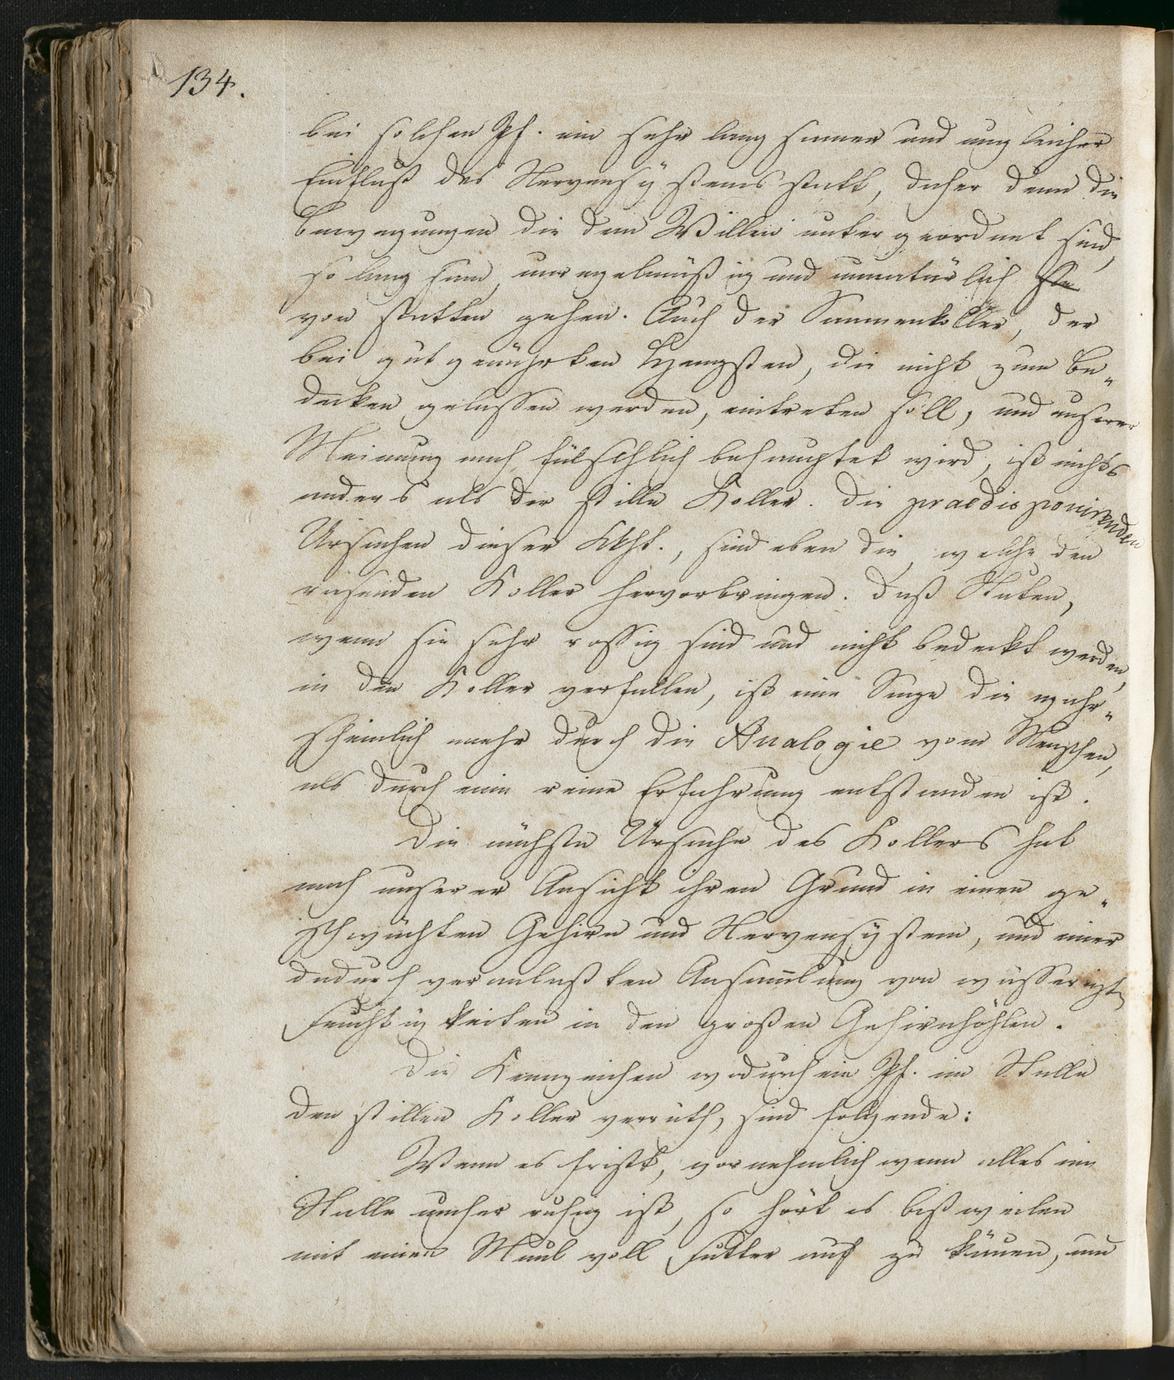 134.
bei solchen Pf. ein sehr langsamer und ungleicher
Einfluß des Nervensÿstems statt, daher denn die
Bewegungen die dem Willen untergeordnet sind,
so langsam, unregelmäßig und unnatürlich
von statten gehen. Auch der Saamenkoller, der
bei gut genährten Hengsten, die nicht zum Be„
decken gelassen werden, eintreten soll, und unserer
Meinung nach fälschlich behauptet wird, ist nichts
anders als der stille Koller. Die praedisponirenden
Ursachen dieser Kkht., sind eben die, welche den
rasenden Koller hervorbringen. Daß Stuten,
wenn sie sehr rossig sind und nicht bedeckt werden,
in den Koller verfallen, ist eine Sage die wahr„
scheinlich mehr durch die Analogie vom Menschen,
als durch eine reine Erfahrung entstanden ist.
Die nächste Ursache des Kollers hat
nach unserer Ansicht ihren Grund in einen ge„
schwächten Gehirn und Nervensÿstem, und einer
dadurch veranlaßten Ansam̄lung von wässerigten
Feuchtigkeiten in den großen Gehirnhöhlen.
Die Kennzeichen wodurch ein Pf. im Stalle
den stillen Koller verräth, sind folgende:
Wenn es frißt, vornehmlich wenn alles im
Stalle umher ruhig ist, so hört es bißweilen
mit einen Maul voll Futter auf zu käuen, und